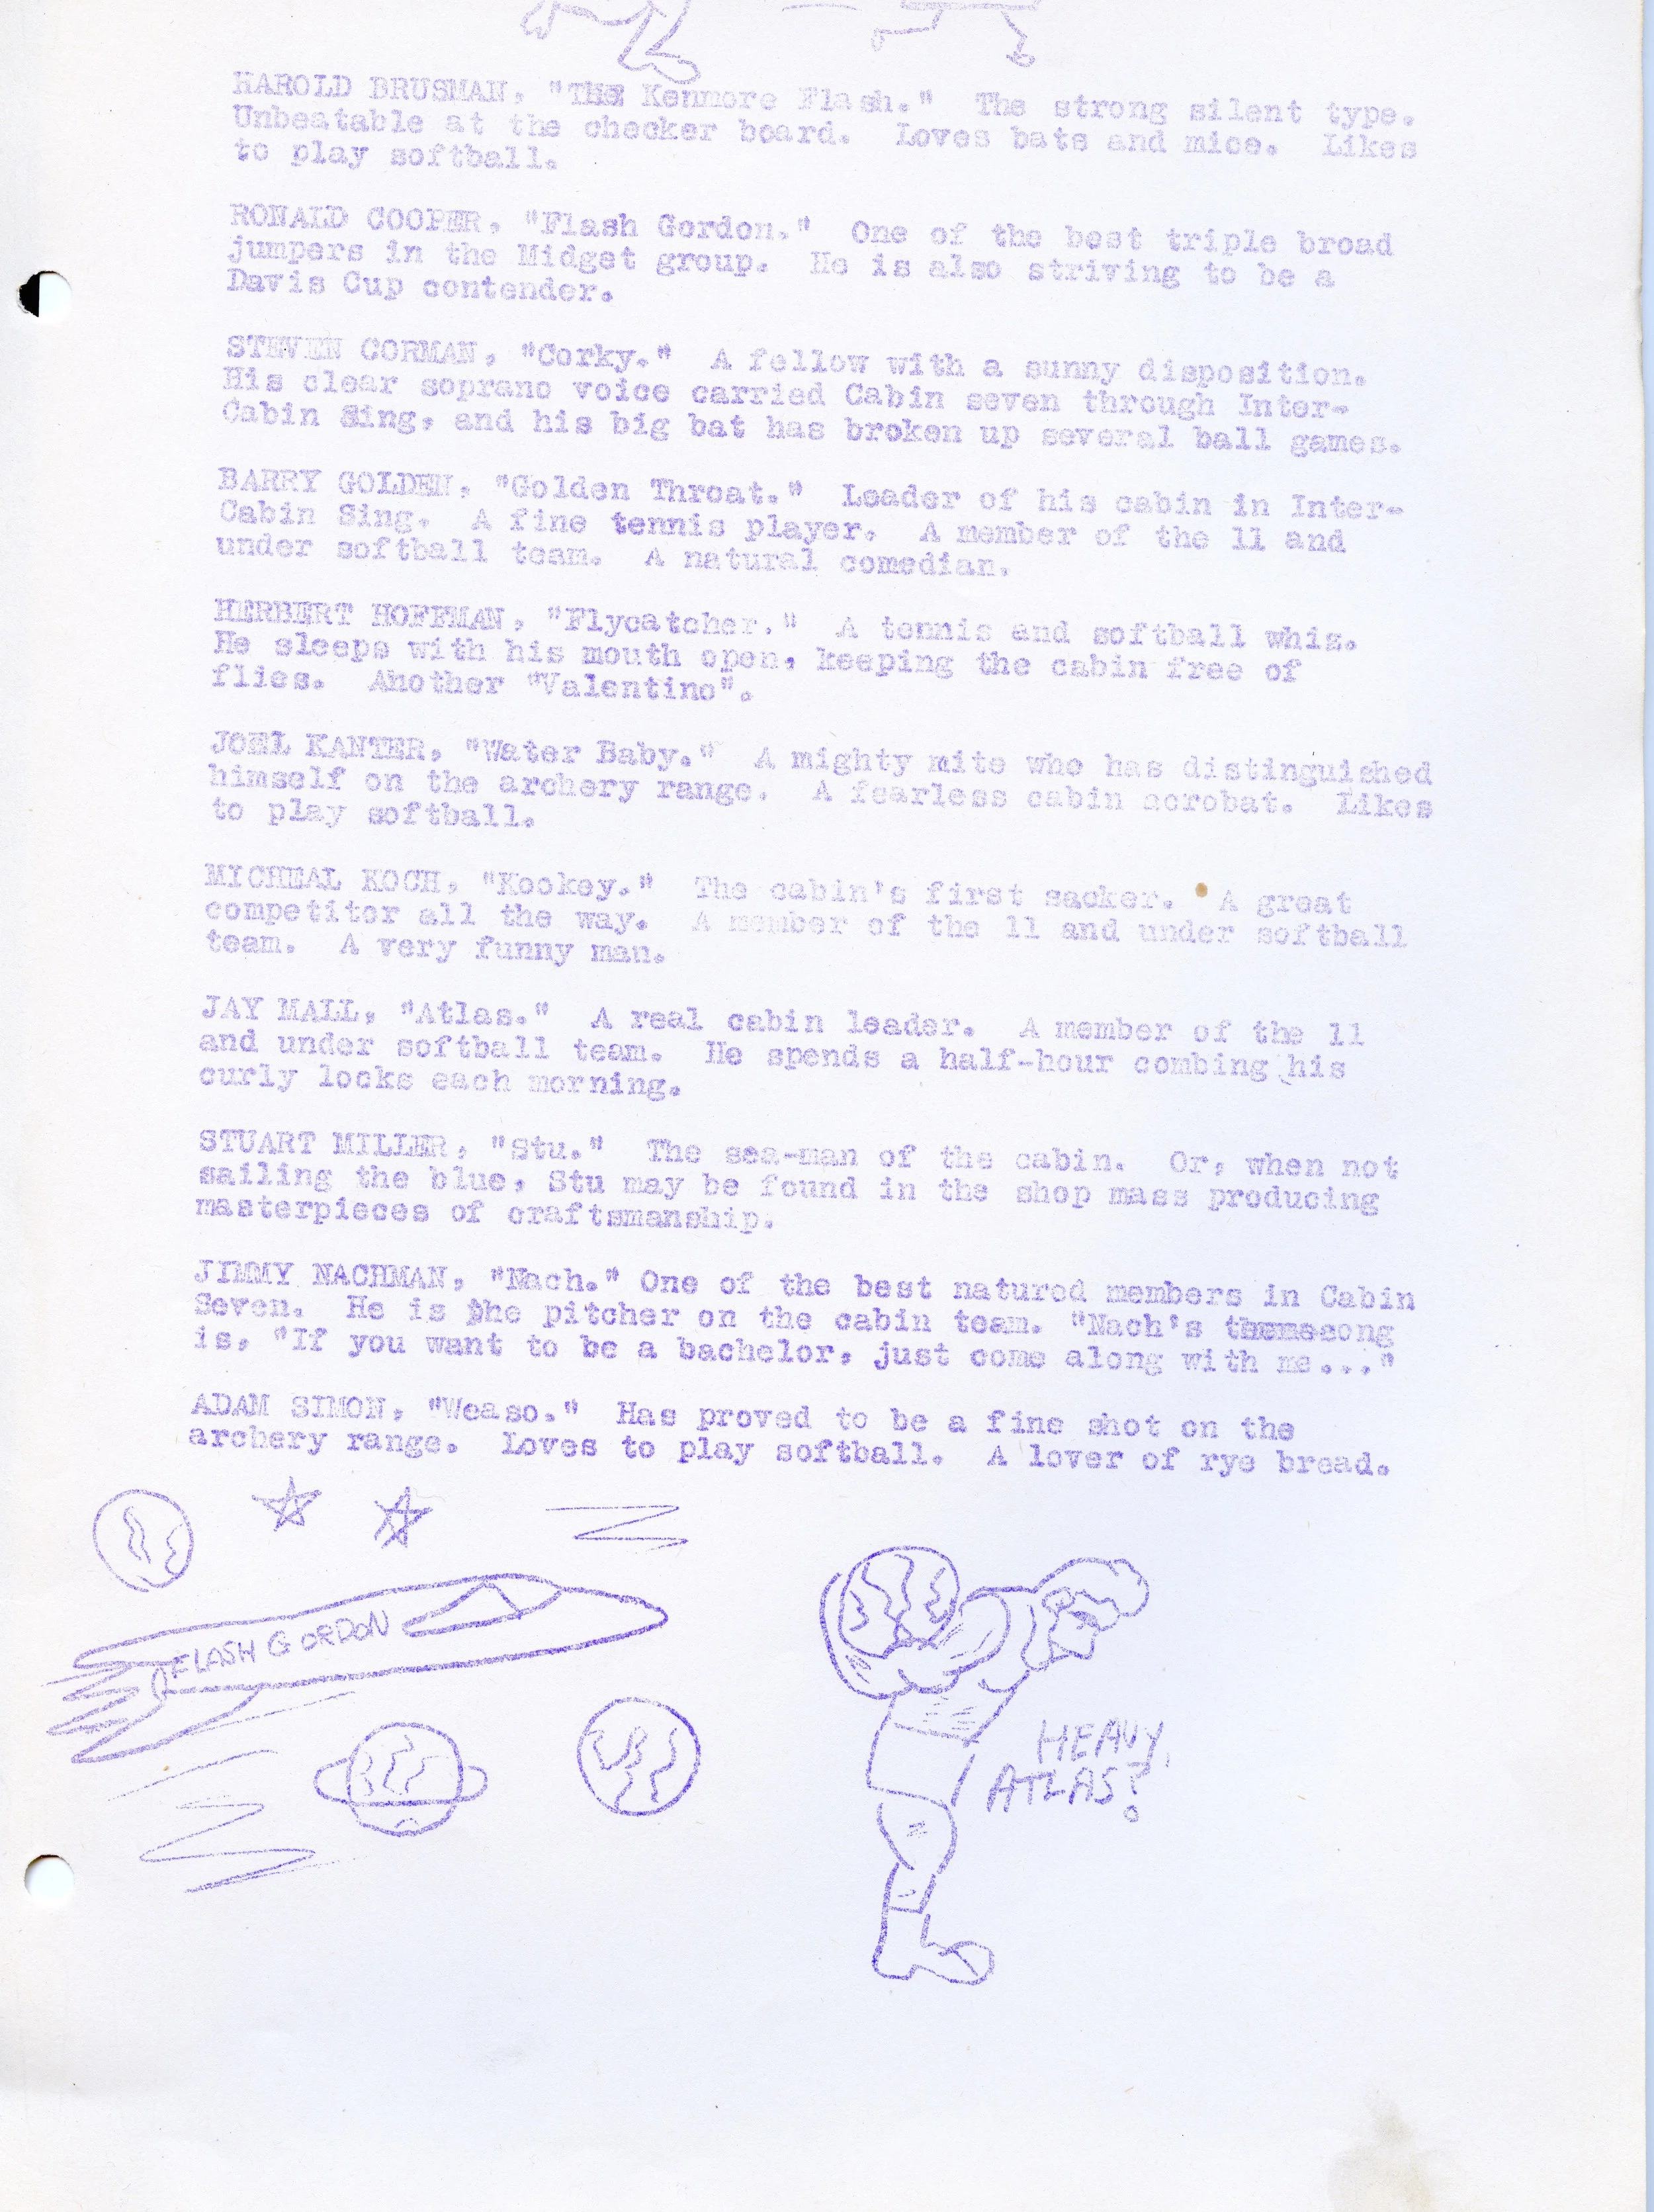 HAROLD BRUSMAN, "THE Kenmore Flash." The strong silent type.
Unbeatable at the checker board. Loves bats and mice. Likes
to play softball.
RONALD COOPER, "Flash Gordon." One of the best triple broad
jumpers in the Midget group. He is also striving to be a
Davis Cup contender.
STEVEN CORMAN, "Corky." A fellow with a sunny disposition.
His clear soprano voice carried Cabin seven through Inter-
Cabin Sing, and his big bat has broken up several ball games.
BARRY GOLDEN, "Golden Throat." Leader of his cabin in Inter-
Cabin Sing. A fine tennis player. A member of the 11 and
under softball team. A natural comedian.
HERBERT HOFFMAN, "Flycatcher." A tennis and softball whiz.
He sleeps with his mouth open, keeping the cabin free of
flies. Another "Valentino".
JOEL KANTER, "Water Baby." A mighty mite who has distinguished
himself on the archery range. A fearless cabin acrobat. Likes
to play softball.
MICHEAL KOCH, "Kockey." The cabin's first sacker. A great
competitor all the way. A member of the 11 and under softball
team. A very funny man.
JAY MALL, "Atlas." A real cabin leader. A member of the 11
and under softball team. He spends a half-hour combing his
curly locks each morning.
STUART MILLER, "Stu." The sea-man of the cabin. Or, when not
sailing the blue, Stu may be found in the shop mass producing
masterpieces of craftsmanship.
JIMMY NACHMAN, "Nach." One of the best natured members in Cabin
Seven. He is the pitcher on the cabin team. "Nach's themesong
is, "If you want to be a bachelor, just come along with me..."
ADAM SIMON, "Weaso." Has proved to be a fine shot on the
archery range. Loves to play softball. A lover of rye bread.
FLASH GORDON
HEAVY,
ATLAS?